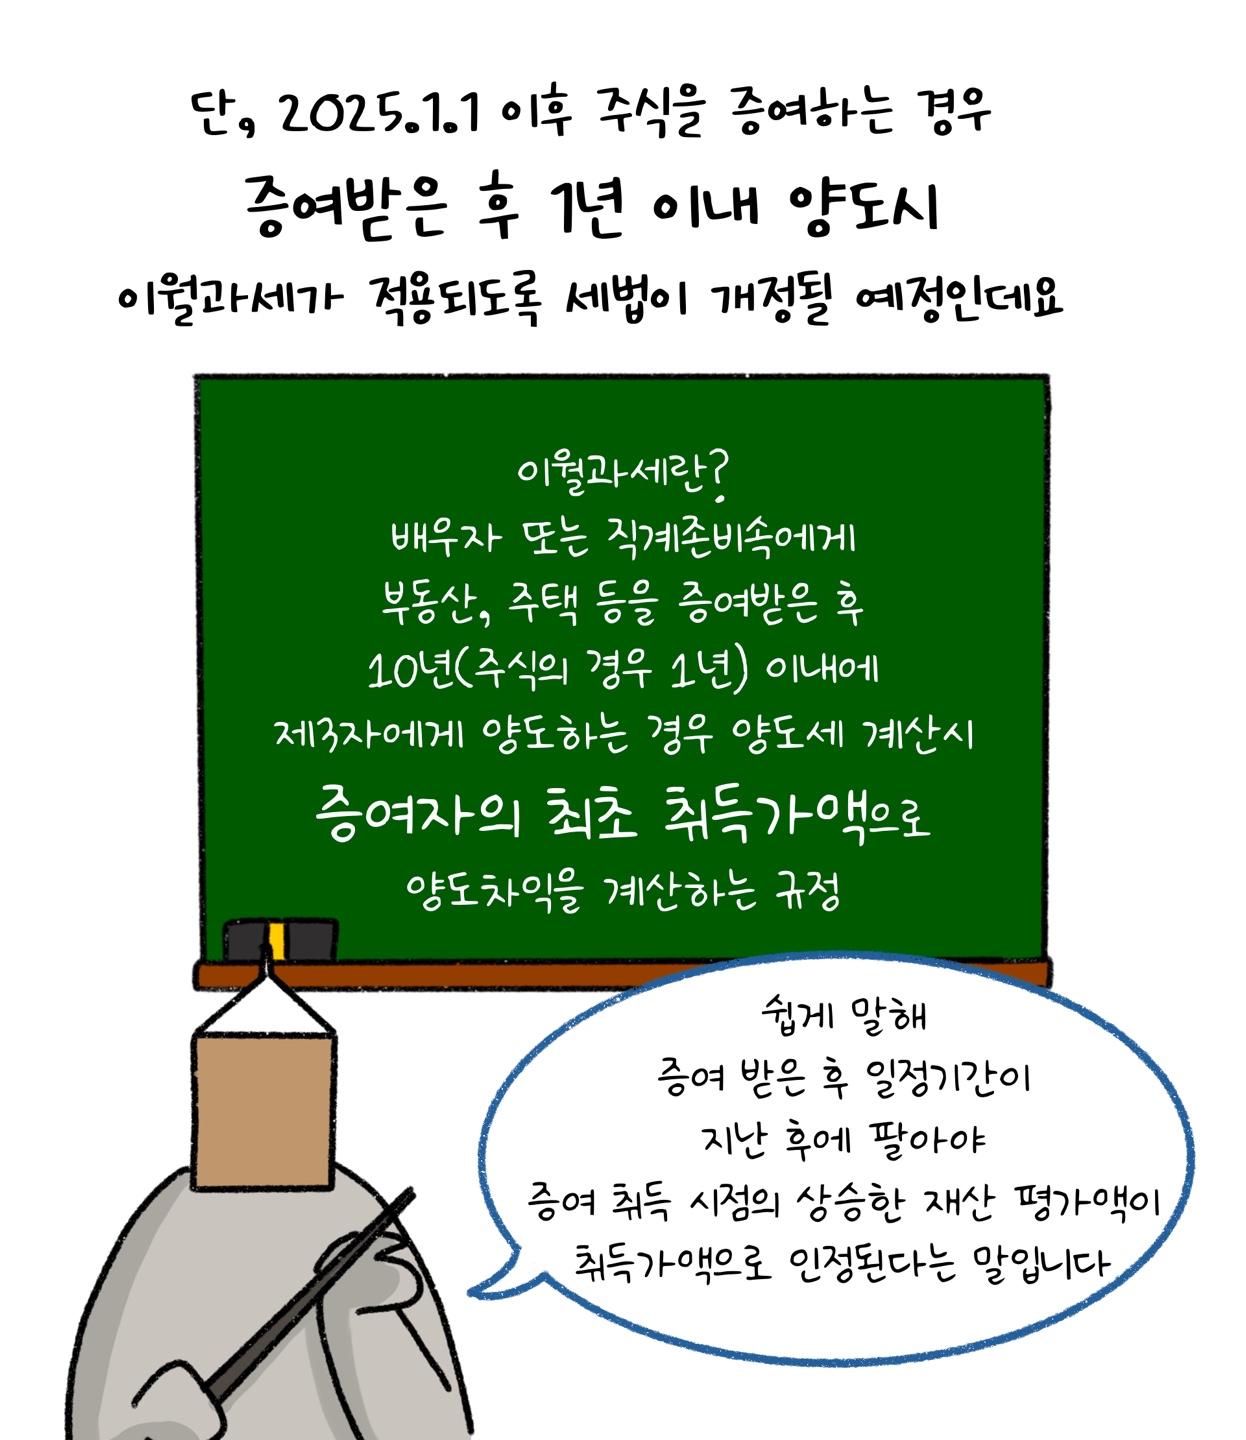 단, 2025.1.1 이후 주식을 증여하는 경우
증여받은 후 1년 이내 양도시
이월과세가 적용되도록 세법이 개정될 예정인데요
이월과세란?
배우자 또는 직계존비속에게
부동산, 주택 등을 증여받은 후
10년(주식의 경우 1년) 이내에
제3자에게 양도하는 경우 양도세 계산시
증여자의 최초 취득가액으로
양도차익을 계산하는 규정
쉽게 말해
증여 받은 후 일정기간이
지난 후에 팔아야
증여 취득 시점의 상승한 재산 평가액이
취득가액으로 인정된다는 말입니다